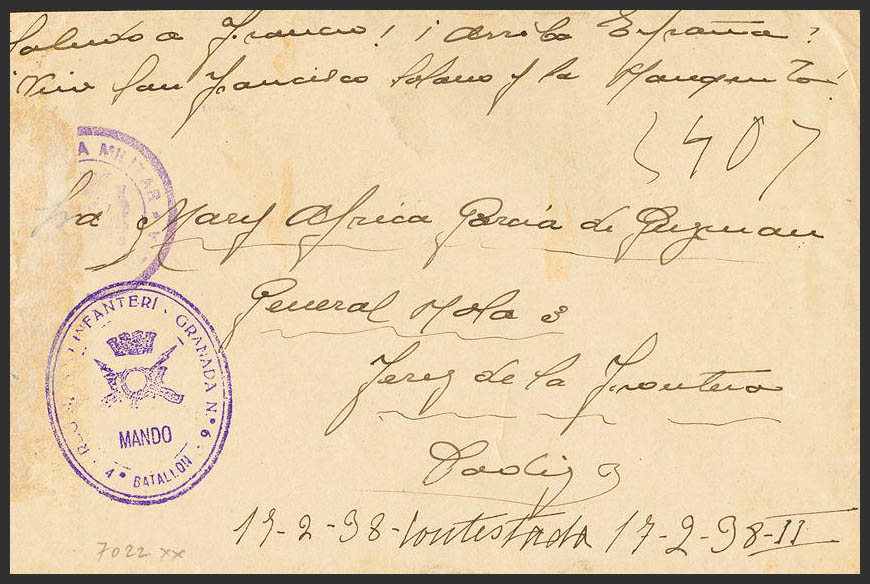 Saludo a Franco! ¡Arriba España!
¡Viva San Francisco Solano y la
A MILITAR
Mary Africa Garcia de Guzman
General Mola 3
Jerez de la Frontera
Cadiz
INFANTERI · GRANADA N.º 6 ·
MANDO
4º BATALLON
17-2-38-Contestada 17-2-38-II
7022 xx